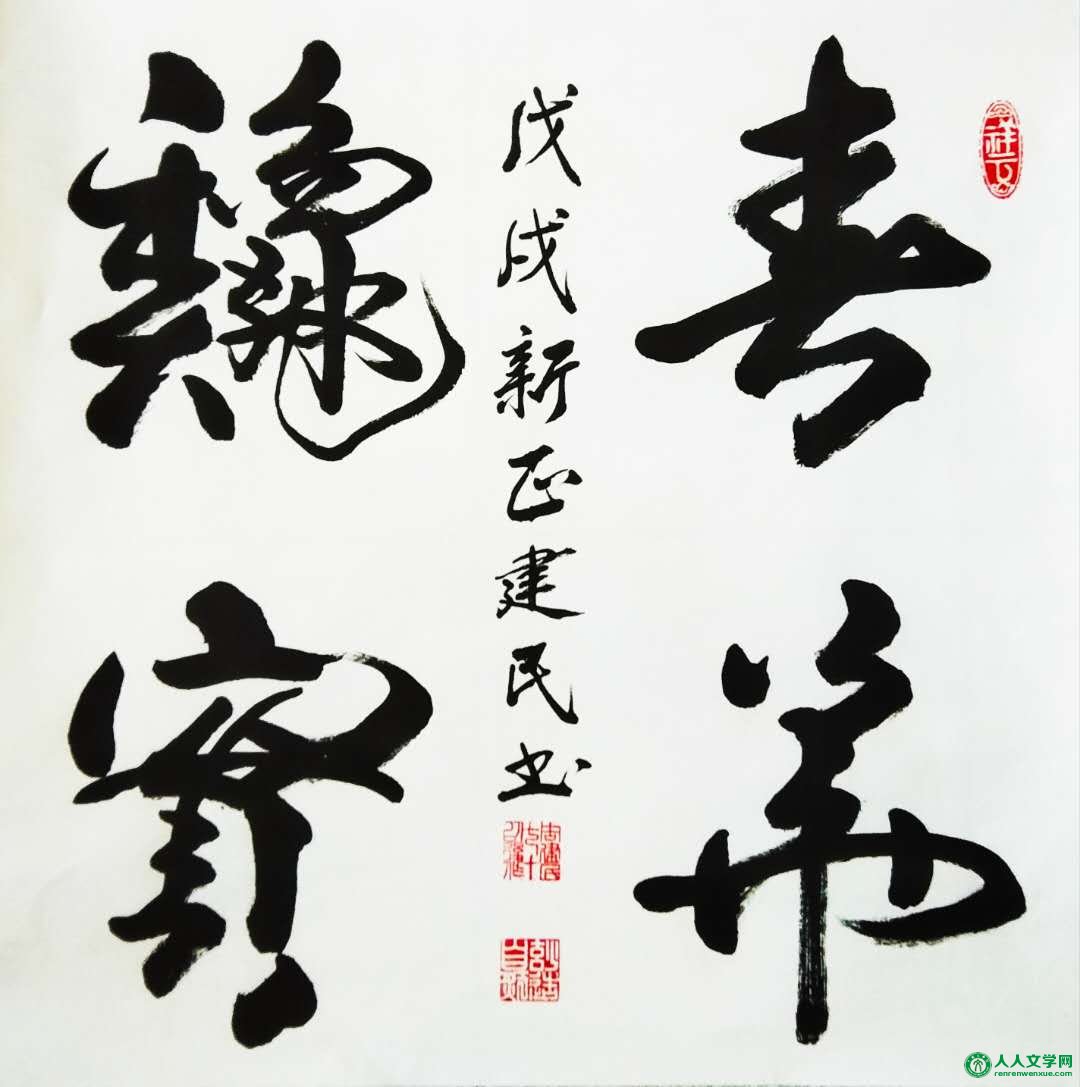 春華
龝實
戊戌新正建民书
人人文学网
renrenwenxue.com